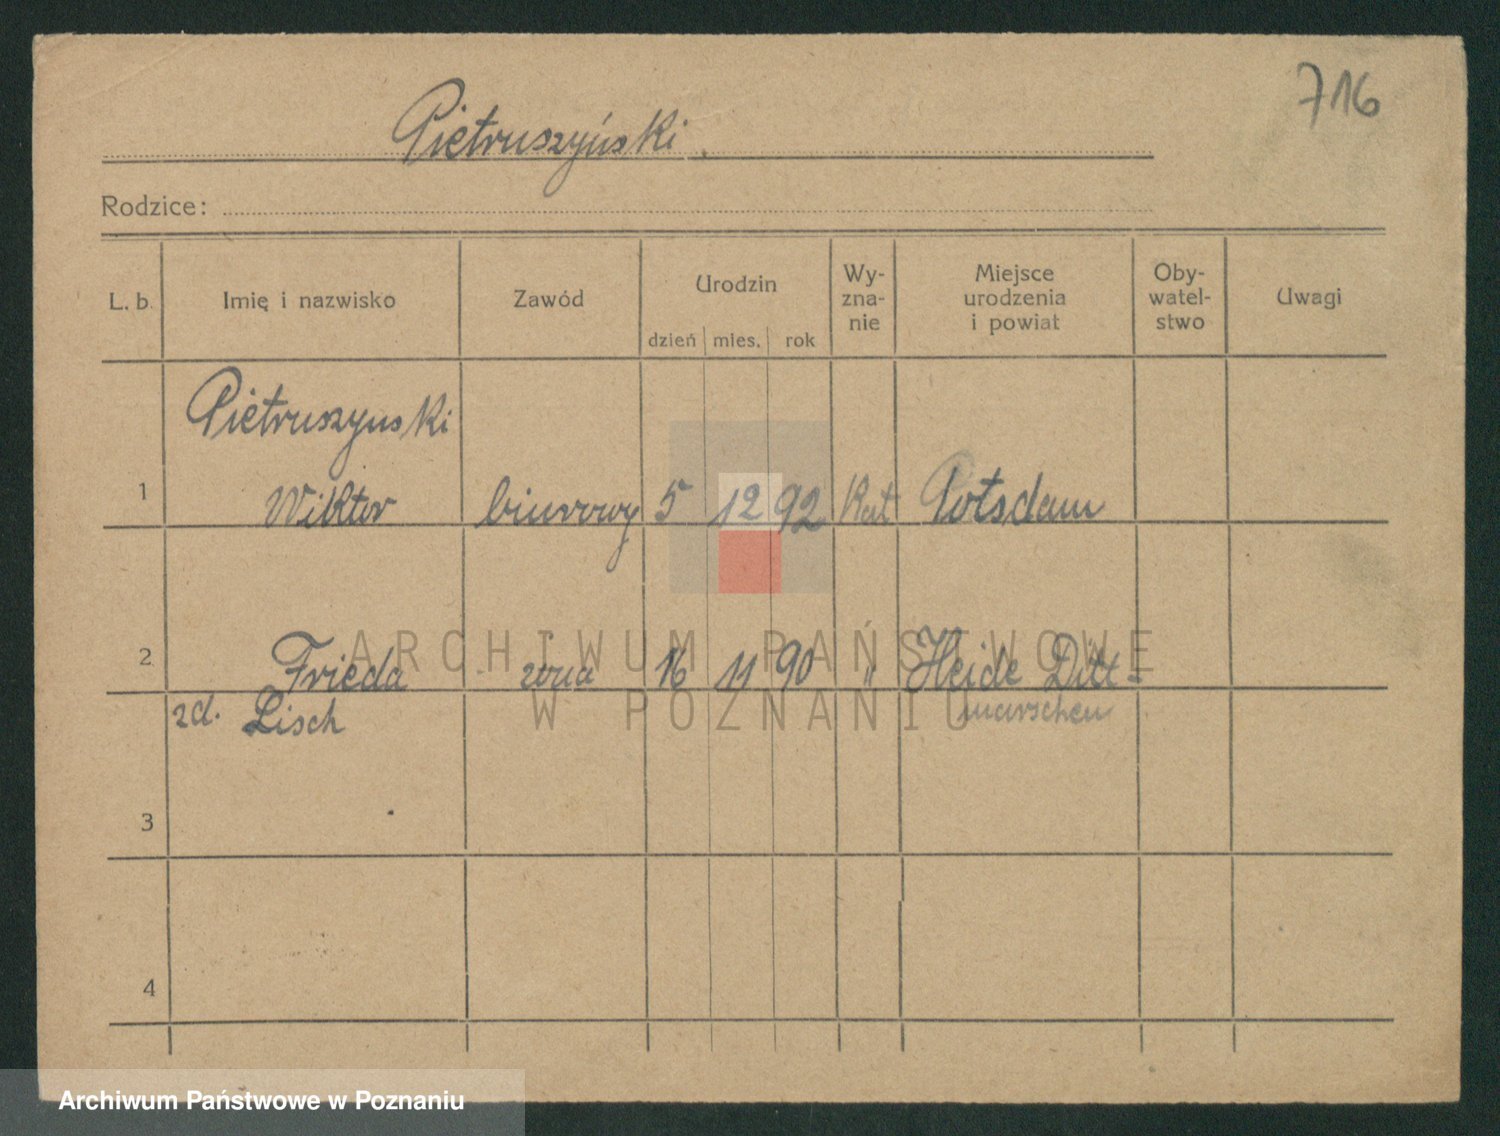 716
Pietruszyński
Rodzice:
L. b. Imię i nazwisko Zawód Urodzin dzień mies. rok Wy-zna-nie Miejsce urodzenia i powiat Oby-watel-stwo Uwagi
Pietruszynski
1 Wiktor biurowy 5 12 92 Kat Potsdam
2 Frieda żona 16 11 90 " Heide Ditt-
zd. Lisch marschen
3
4
ARCHIWUM PAŃSTWOWE
W POZNANIU
Archiwum Państwowe w Poznaniu